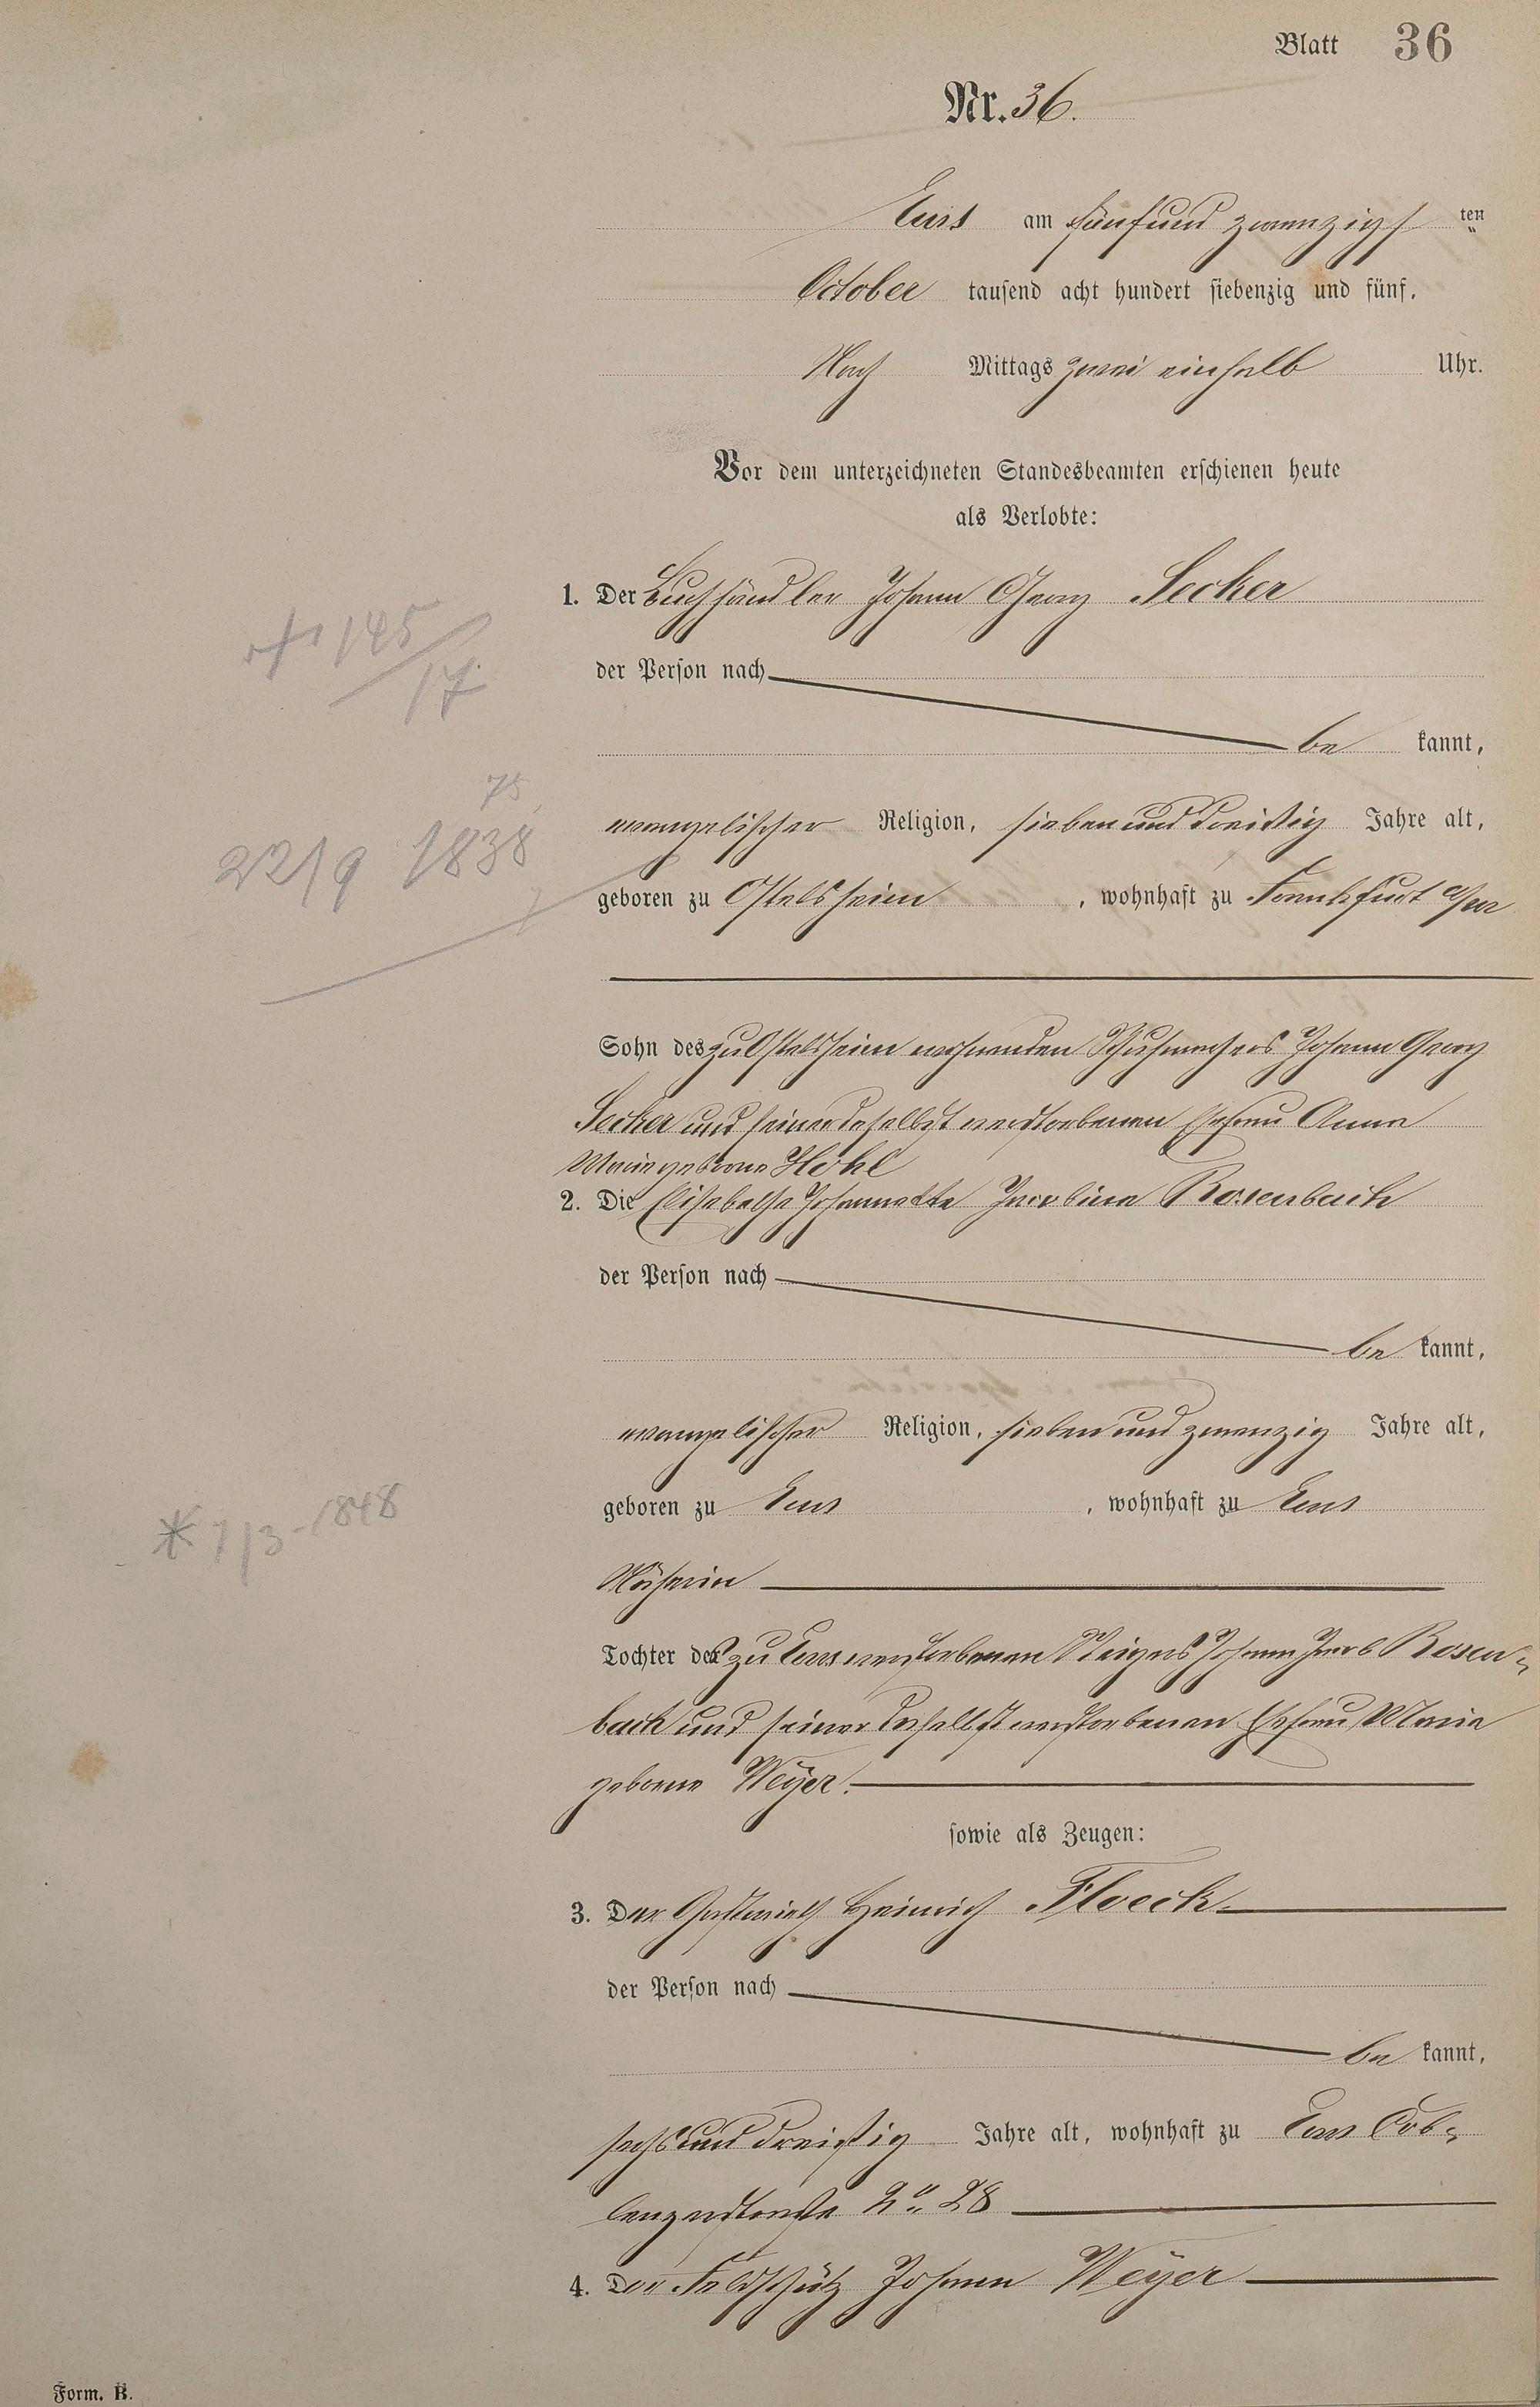 Blatt 36
Nr. 36.
Ems am fünfund zwanzigsten
October tausend acht hundert siebenzig und fünf,
Nach Mittags zwei einhalb Uhr.
Vor dem unterzeichneten Standesbeamten erschienen heute
als Verlobte:
1. Der Buchhändler Johann Georg Secker
der Person nach
be kannt,
evangelischer Religion, sieben und dreißig Jahre alt,
geboren zu Ostelsheim, wohnhaft zu Frankfurt a/m
Sohn des zu Ostelsheim wohnenden Schuhmachers Johann Georg
Secker und seiner daselbst verstorbenen Ehefrau Anna
Maria geborne Höhl
2. Die Elisabetha Johannette Jacobine Rosenbach
der Person nach
be kannt,
evangelischer Religion, sieben und zwanzig Jahre alt,
geboren zu Ems, wohnhaft zu Ems
Näherin
Tochter des zu Ems verstorbenen Johann Jacob Rosen-
bach und seiner daselbst verstorbenen Ehefrau Maria
geborne Weyer.
sowie als Zeugen:
3. Der Gastwirth Heinrich Floeck
der Person nach
be kannt,
sechs und dreißig Jahre alt, wohnhaft zu Ems Cob-
lenzerstraße No 28
4. Der Feldschütz Johann Weyer
145
17
75
22/9 1838
* 7/3 - 1848
Form. B.